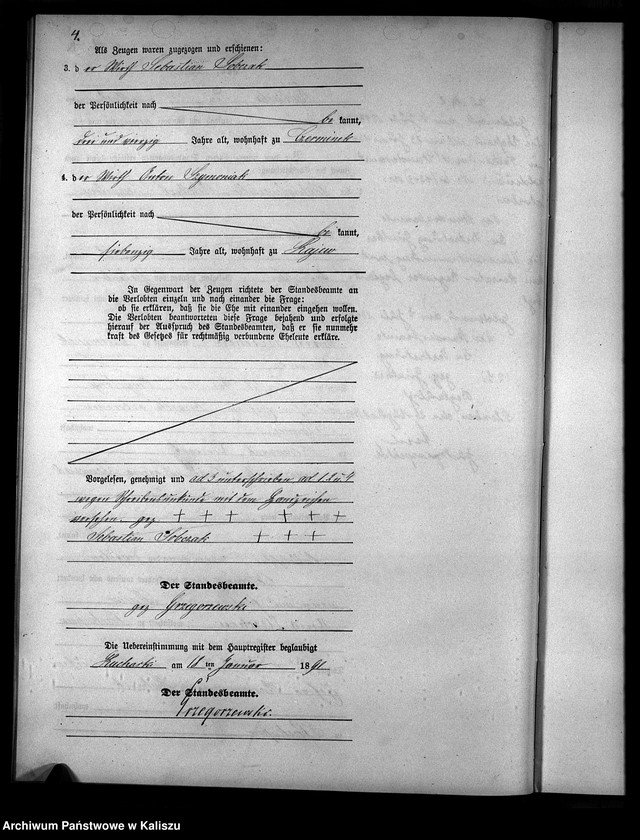 4.
Als Zeugen waren zugezogen und erschienen:
3. d er Wirth Sebastian Sobczak
der Persönlichkeit nach
be kannt,
drei und vierzig Jahre alt, wohnhaft zu Czerminek
4. d er Wirth Anton Szymoniak
der Persönlichkeit nach
be kannt,
siebenzig Jahre alt, wohnhaft zu Rajew
In Gegenwart der Zeugen richtete der Standesbeamte an
die Verlobten einzeln und nach einander die Frage:
ob sie erklären, daß sie die Ehe mit einander eingehen wollen.
Die Verlobten beantworteten diese Frage bejahend und erfolgte
hierauf der Ausspruch des Standesbeamten, daß er sie nunmehr
kraft des Gesetzes für rechtmäßig verbundene Eheleute erkläre.
Vorgelesen, genehmigt und ad 3 unterschrieben ad 1. 2 u 4
wegen Schreibensunkunde mit dem Handzeichen
versehen. gez + + + + + +
Sebastian Sobczak + + +
Der Standesbeamte.
gez Grzegorzewski
Die Uebereinstimmung mit dem Hauptregister beglaubigt
Kucharki am 11 ten Januar 18 91
Der Standesbeamte.
Grzegorzewski.
Archiwum Państwowe w Kaliszu